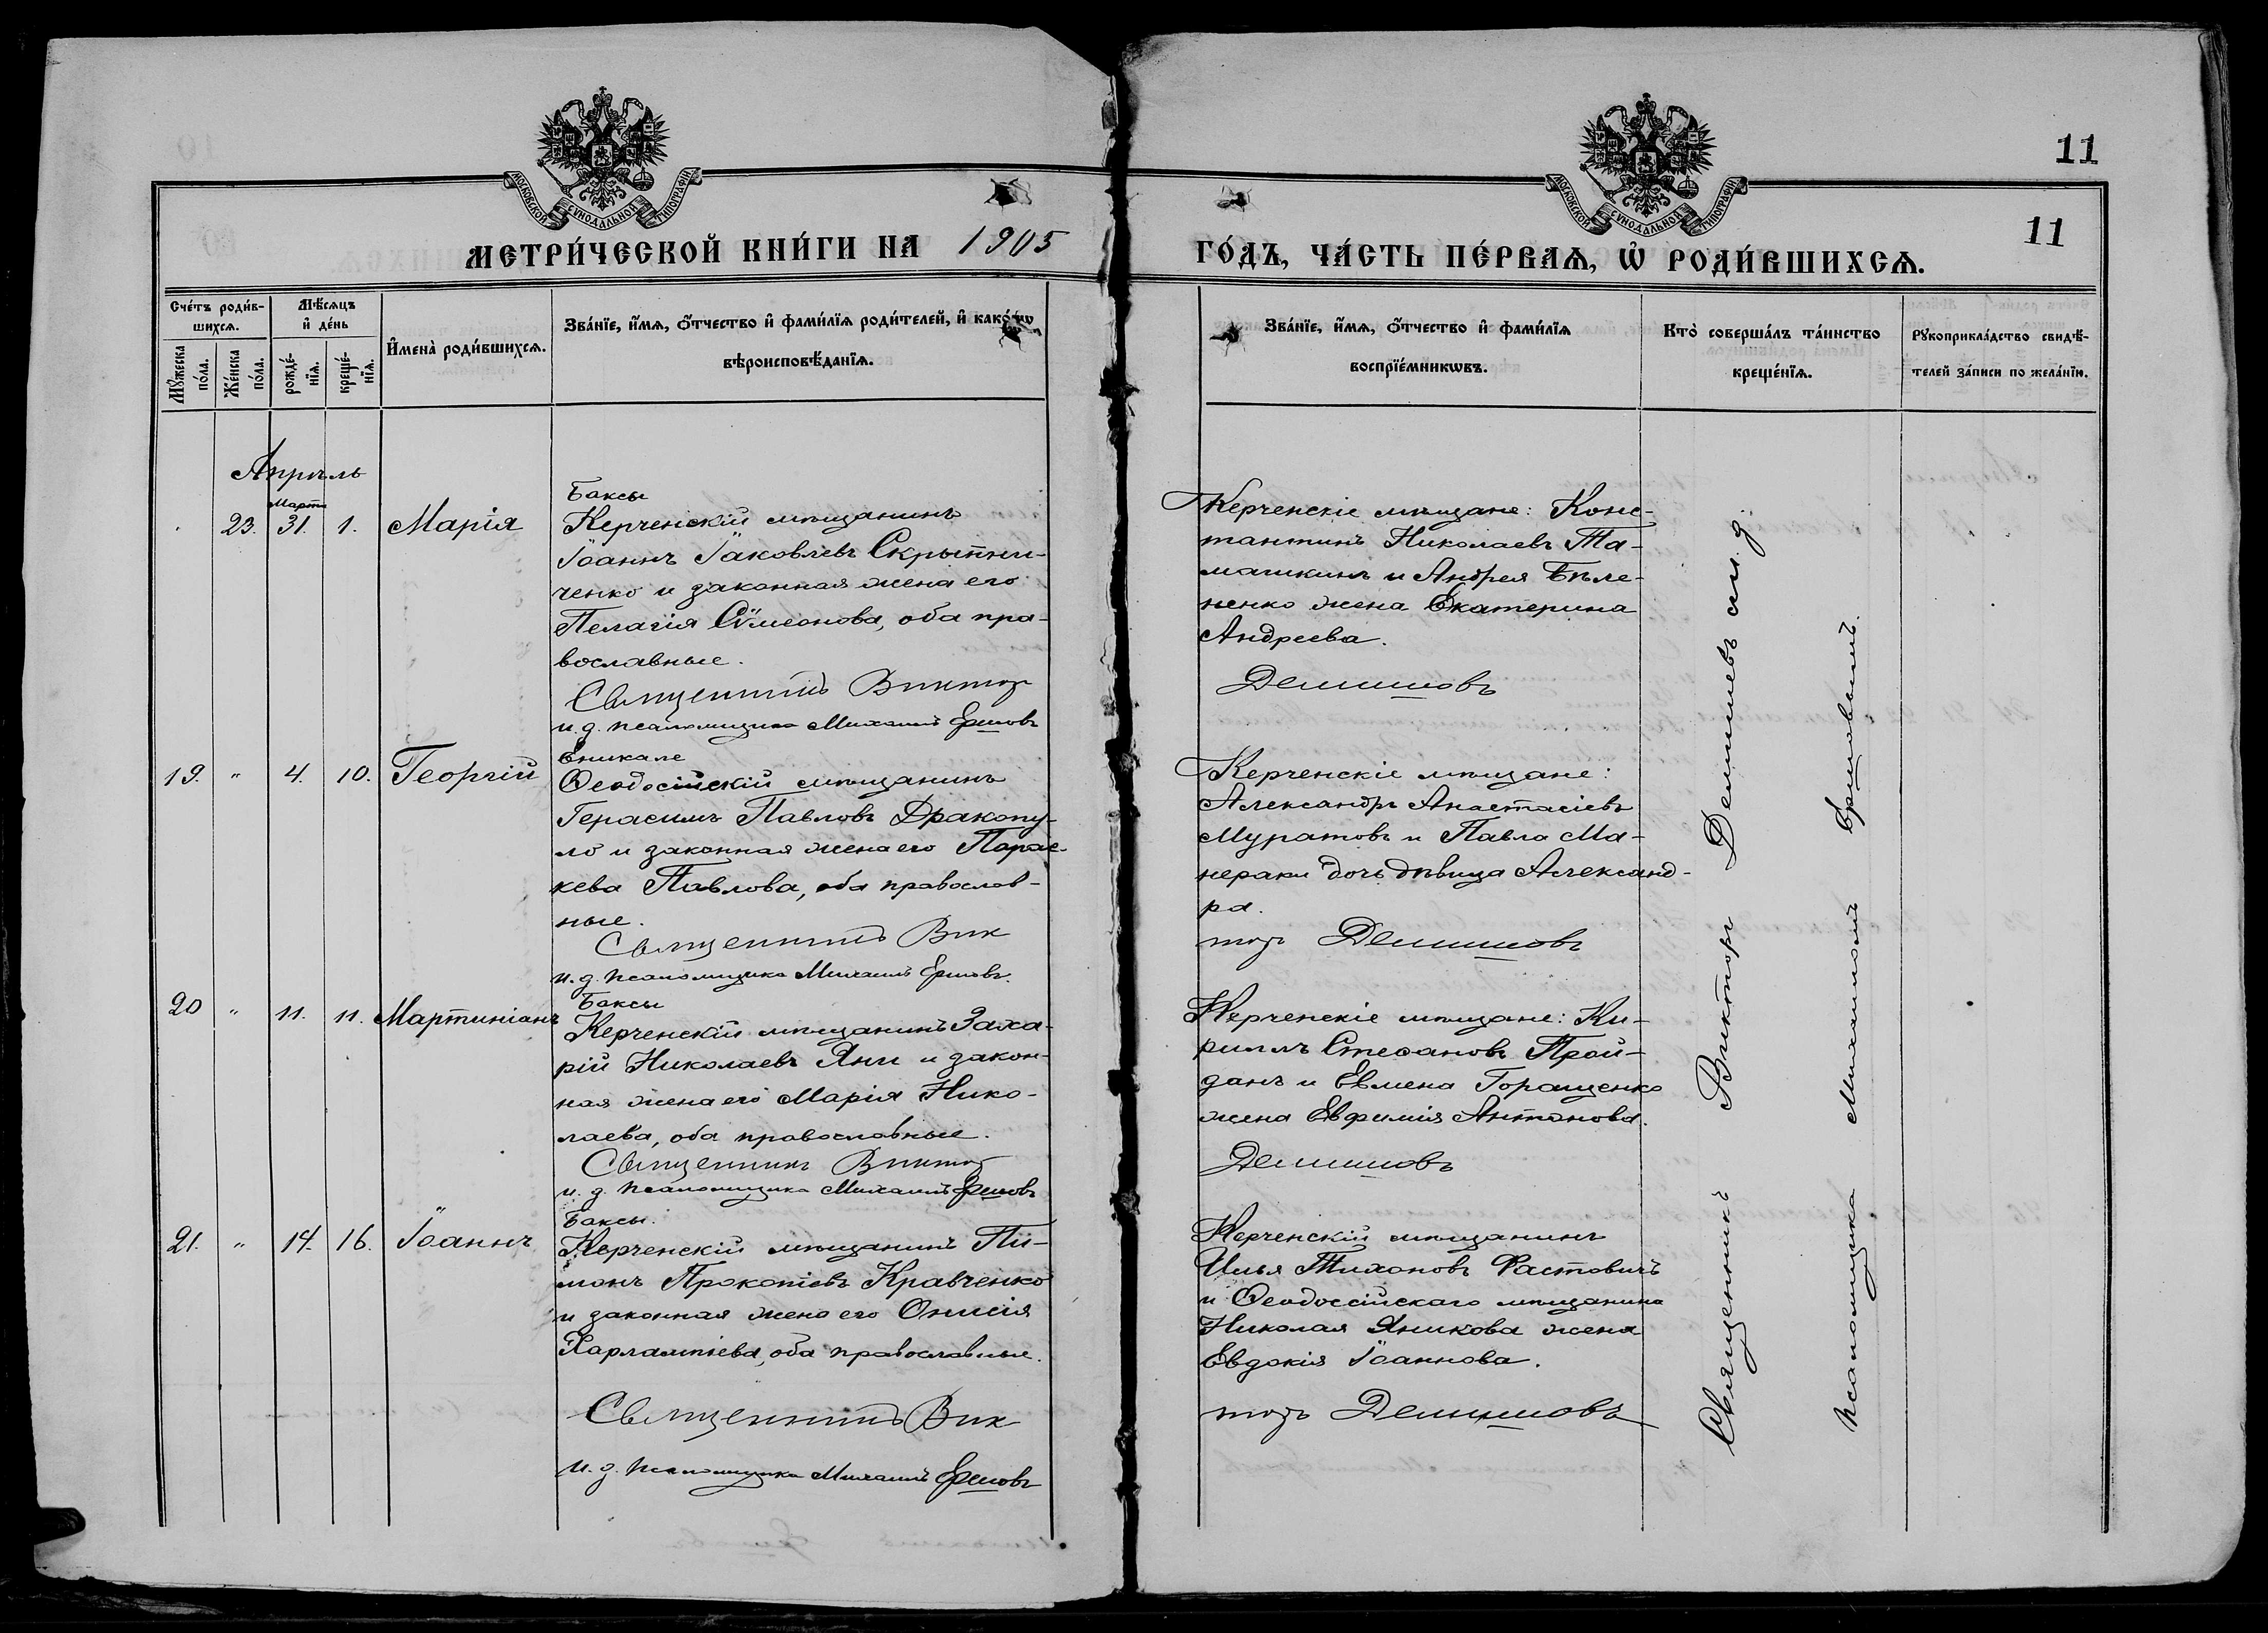 11
11
МОСКОВСКОЙ СѴНОДАЛЬНОЙ ТИПОГРАФІИ
МОСКОВСКОЙ СѴНОДАЛЬНОЙ ТИПОГРАФІИ
МЕТРИ́ЧЕСКОЙ КНИ́ГИ НА 1905
ГО́ДЪ, ЧА́СТЬ ПЕ́РВАѦ, Ѡ҆ РОДИ́ВШИХСѦ.
Сче́тъ роди́в-
шихсѧ.
Мѣ́сѧцъ
и҆ де́нь
Мꙋ́жеска
по́ла.
Же́нска
по́ла.
рожде́-
нїѧ.
креще́-
нїѧ.
И҆мена̀ роди́вшихсѧ.
Зва́нїе, и҆́мѧ, ѻ҆́тчество и҆ фами́лїѧ роди́телей, и҆ како́гѡ
вѣроисповѣ́данїѧ.
Зва́нїе, и҆́мѧ, ѻ҆́тчество и҆ фами́лїѧ
воспрїе́мникѡвъ.
Кто̀ соверша́лъ та́инство
креще́нїѧ.
Рꙋкоприкла́дство свидѣ́-
телей за́писи по жела́нїю.
Апрѣль
Марта
23. 31. 1. Марія
Баксы
Керченскій мѣщанинъ
Іоаннъ Іаковлевъ Скрыпни-
ченко и законная жена его
Пелагія Сѵмеонова, оба пра-
вославные.
Священникъ Виктор
и. д. псаломщика Михаилъ Ершовъ
Керченскіе мѣщане: Конс-
тантинъ Николаевъ Та-
машкинъ и Андрея Бѣле-
ненко жена Екатерина
Андреева.
Демишовъ
19. " 4. 10. Георгій
Еникале
Ѳеодосійскій мѣщанинъ
Герасимъ Павловъ Дракопу-
ло и законная жена его Парас-
кева Павлова, оба православ-
ные.
Священникъ Вик
и. д. псаломщика Михаилъ Ершовъ.
Керченскіе мѣщане:
Александръ Анастасіевъ
Муратовъ и Павла Ма-
нераки дочь дѣвица Александ-
ра.
торъ Демишовъ
20 " 11. 11. Мартиніанъ
Баксы
Керченскій мѣщанинъ Заха-
рій Николаевъ Яни и закон-
ная жена его Марія Нико-
лаева, оба православные.
Священникъ Виктор
и. д. псаломщика Михаилъ Ершовъ
Керченскіе мѣщане: Ки-
риллъ Стефановъ Прой-
данъ и Евмена Горащенко
жена Евфимія Антонова.
Демишовъ
21. " 14. 16. Іоаннъ
Баксы.
Керченскій мѣщанинъ Пи-
монъ Прокопіевъ Кравченко
и законная жена его Онисія
Харлампіева, оба православные.
Священникъ Вик
и. д. псаломщика Михаилъ Ершовъ
Керченскій мѣщанинъ
Илья Тихоновъ Фастовичъ
и Ѳеодоссійскаго мѣщанина
Николая Яникова жена
Евдокія Іоаннова.
торъ Демишовъ
Священникъ Викторъ Демишевъ
псаломщика Михаилъ Ершовый.